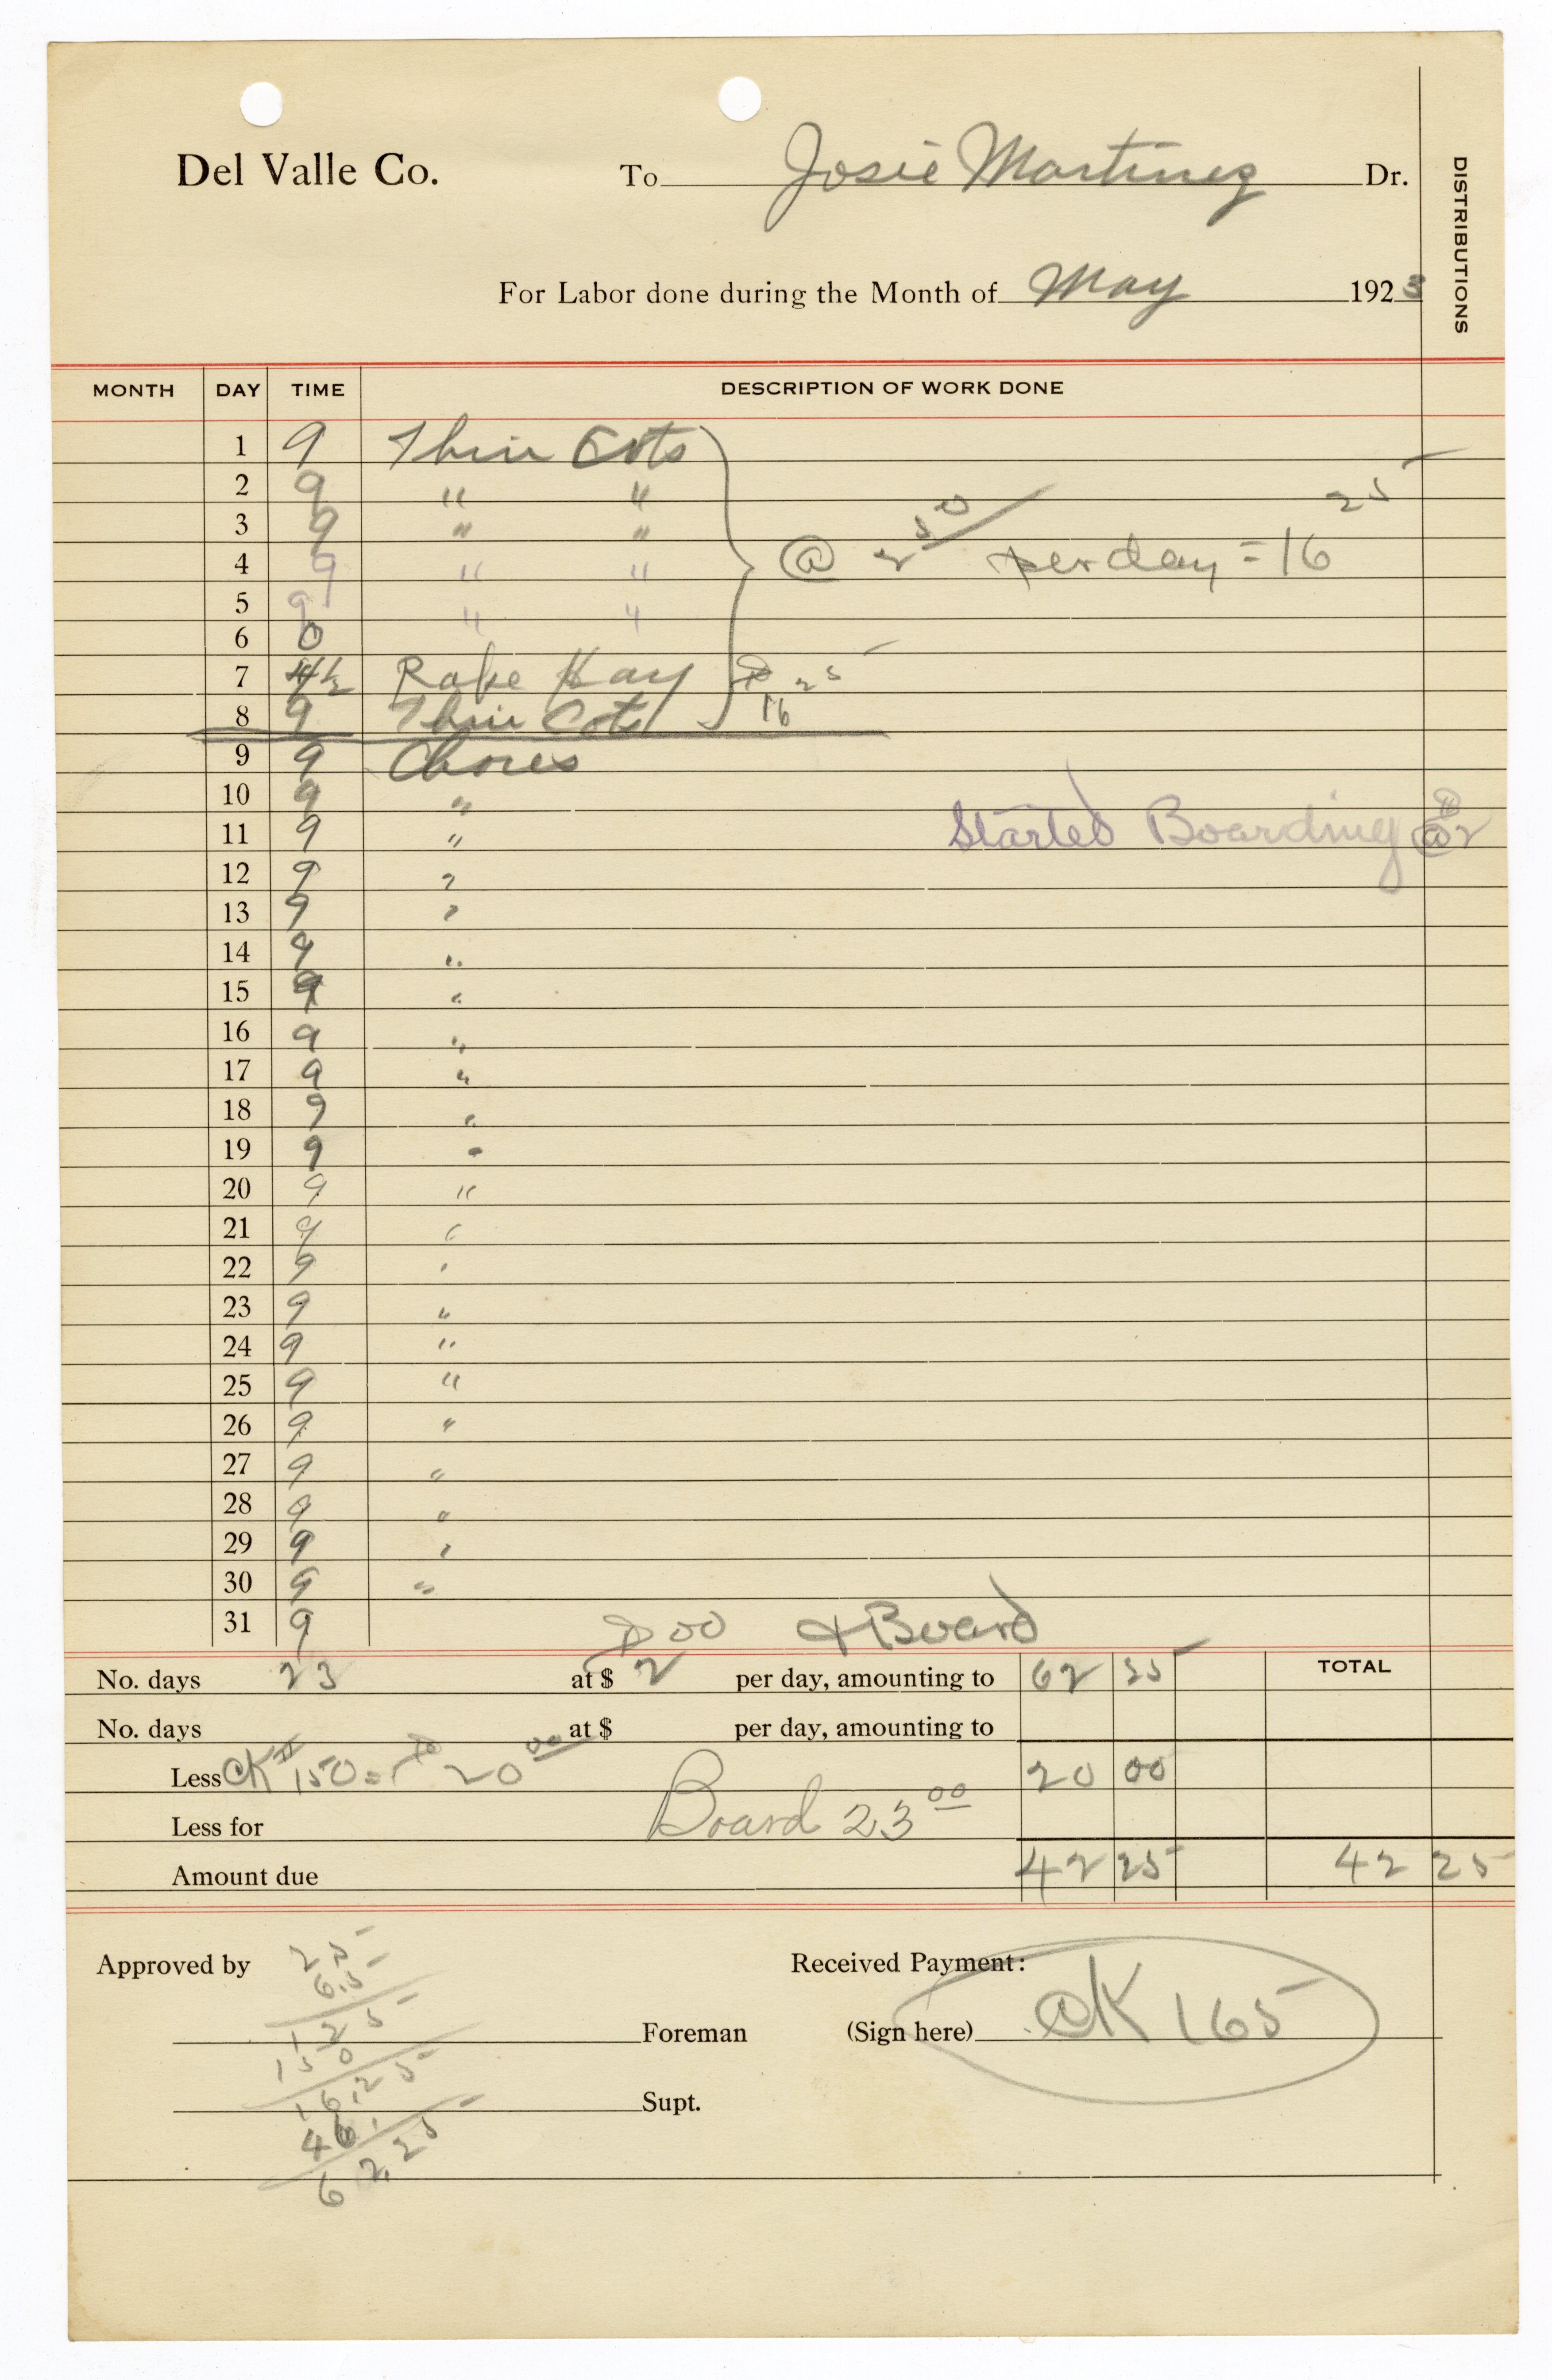 Del Valle Co. To Josie Martinez Dr.
DISTRIBUTIONS
For Labor done during the Month of May 1923
MONTH DAY TIME DESCRIPTION OF WORK DONE
1 9 Thin Cots
2 9 " "
3 9 " "
4 9 " " @ 2 50 per day = 16 25
5 9 " "
6 0
7 4½ Rake Hay $ 16 25
8 9 Thin Cots
9 9 Chores
10 9 "
11 9 " Started Boarding @ $2
12 9 "
13 9 "
14 9 "
15 9 "
16 9 "
17 9 "
18 9 "
19 9 "
20 9 "
21 9 "
22 9 "
23 9 "
24 9 "
25 9 "
26 9 "
27 9 "
28 9 "
29 9 "
30 9 "
31 9
$ 00 + Board
No. days 23 at $ 2 per day, amounting to 62 25 TOTAL
No. days at $ per day, amounting to
Less CK # 150 = $ 20 00 20 00
Less for Board 23 00
Amount due 42 25 42 25
Approved by Received Payment:
2 5
6.5
1 2 5
Foreman (Sign here) CK 165
15 0
16.25
Supt.
46.
62.25